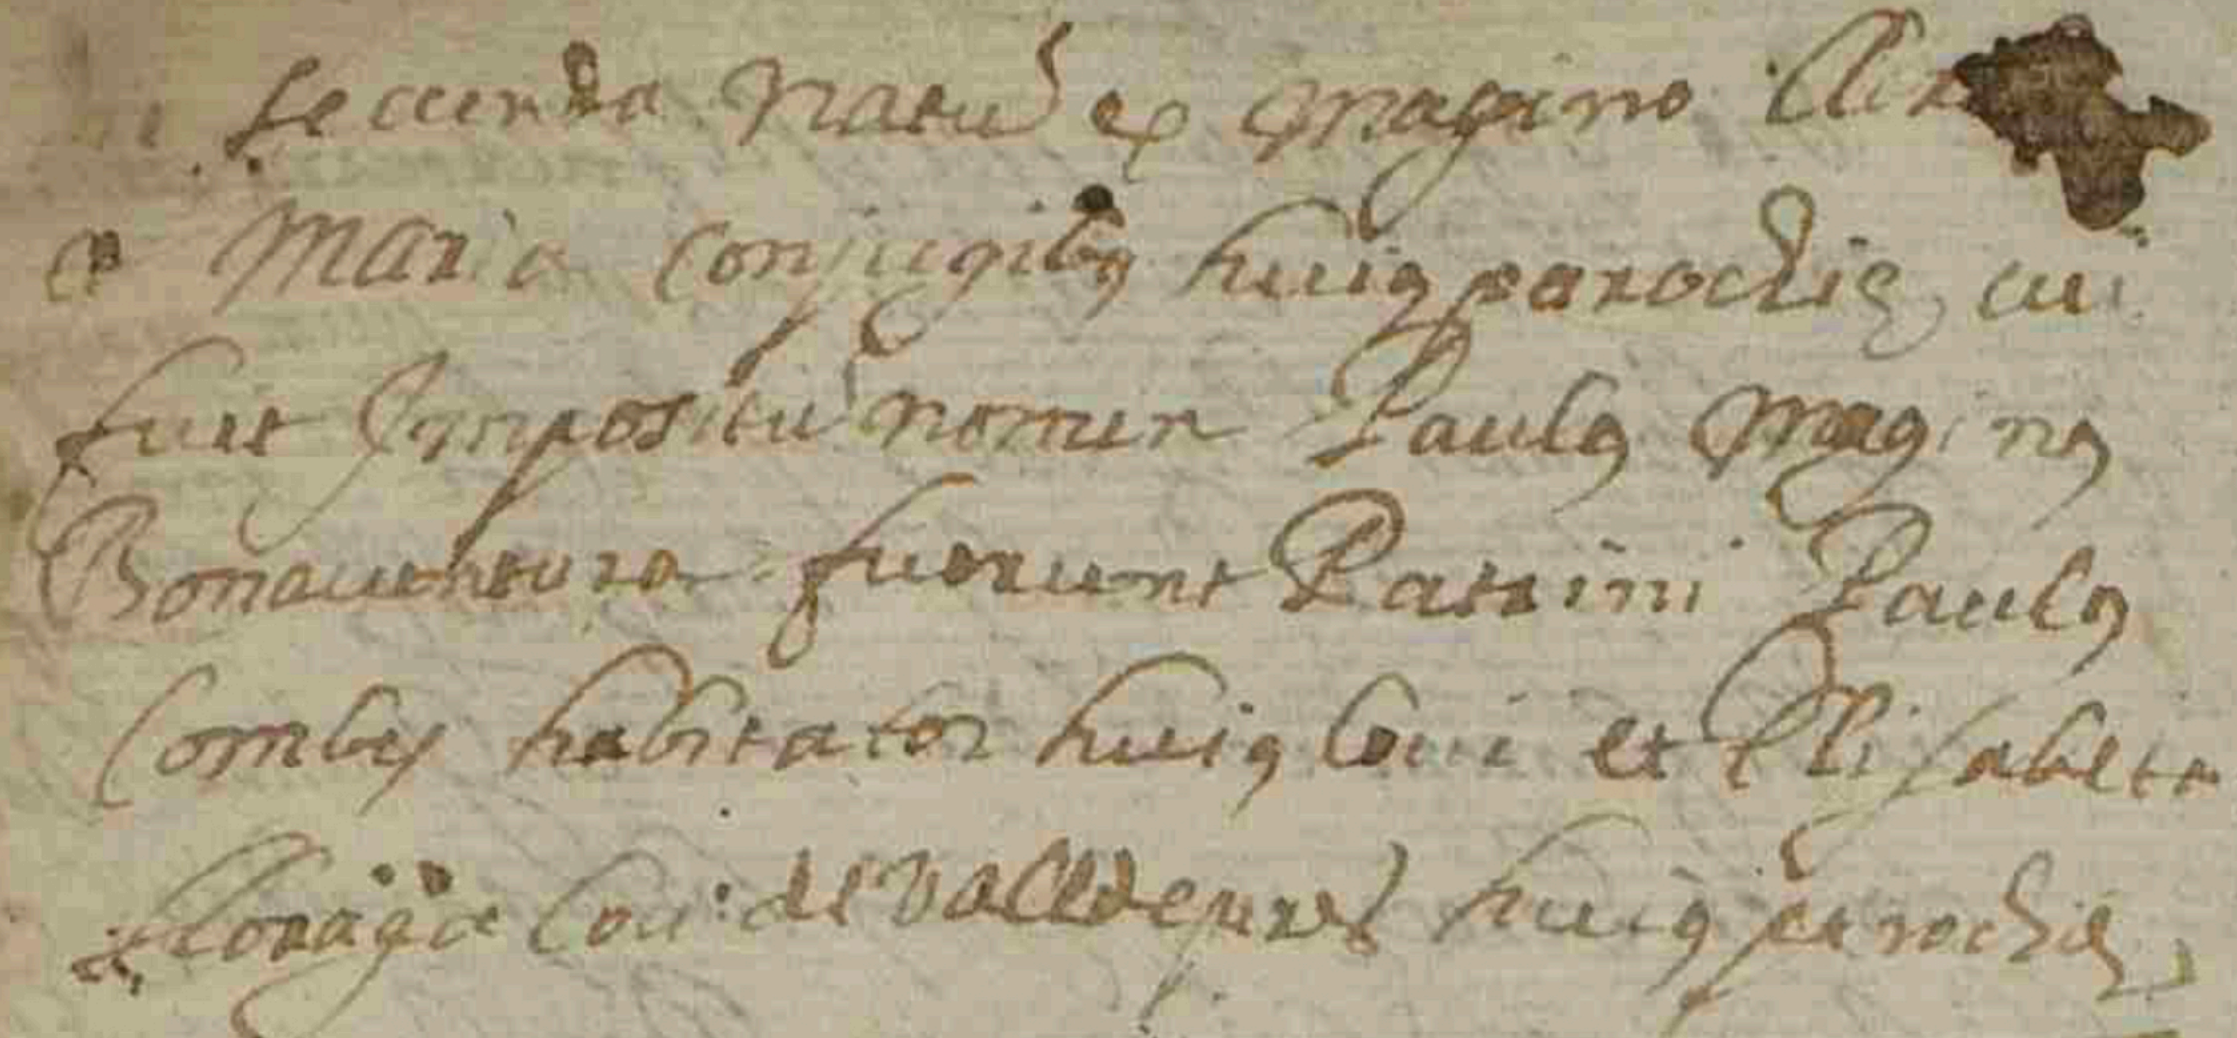 secunda natus ex Magino
et Maria conjugibus huius parochie cui
fuit Impositu nomen Paulus Maginus
Bonaventura fuerunt Patrini Paulus
Combis habitator huius loci et Elisabeth
Lloraga Coi: de Valldeperes huius parochie